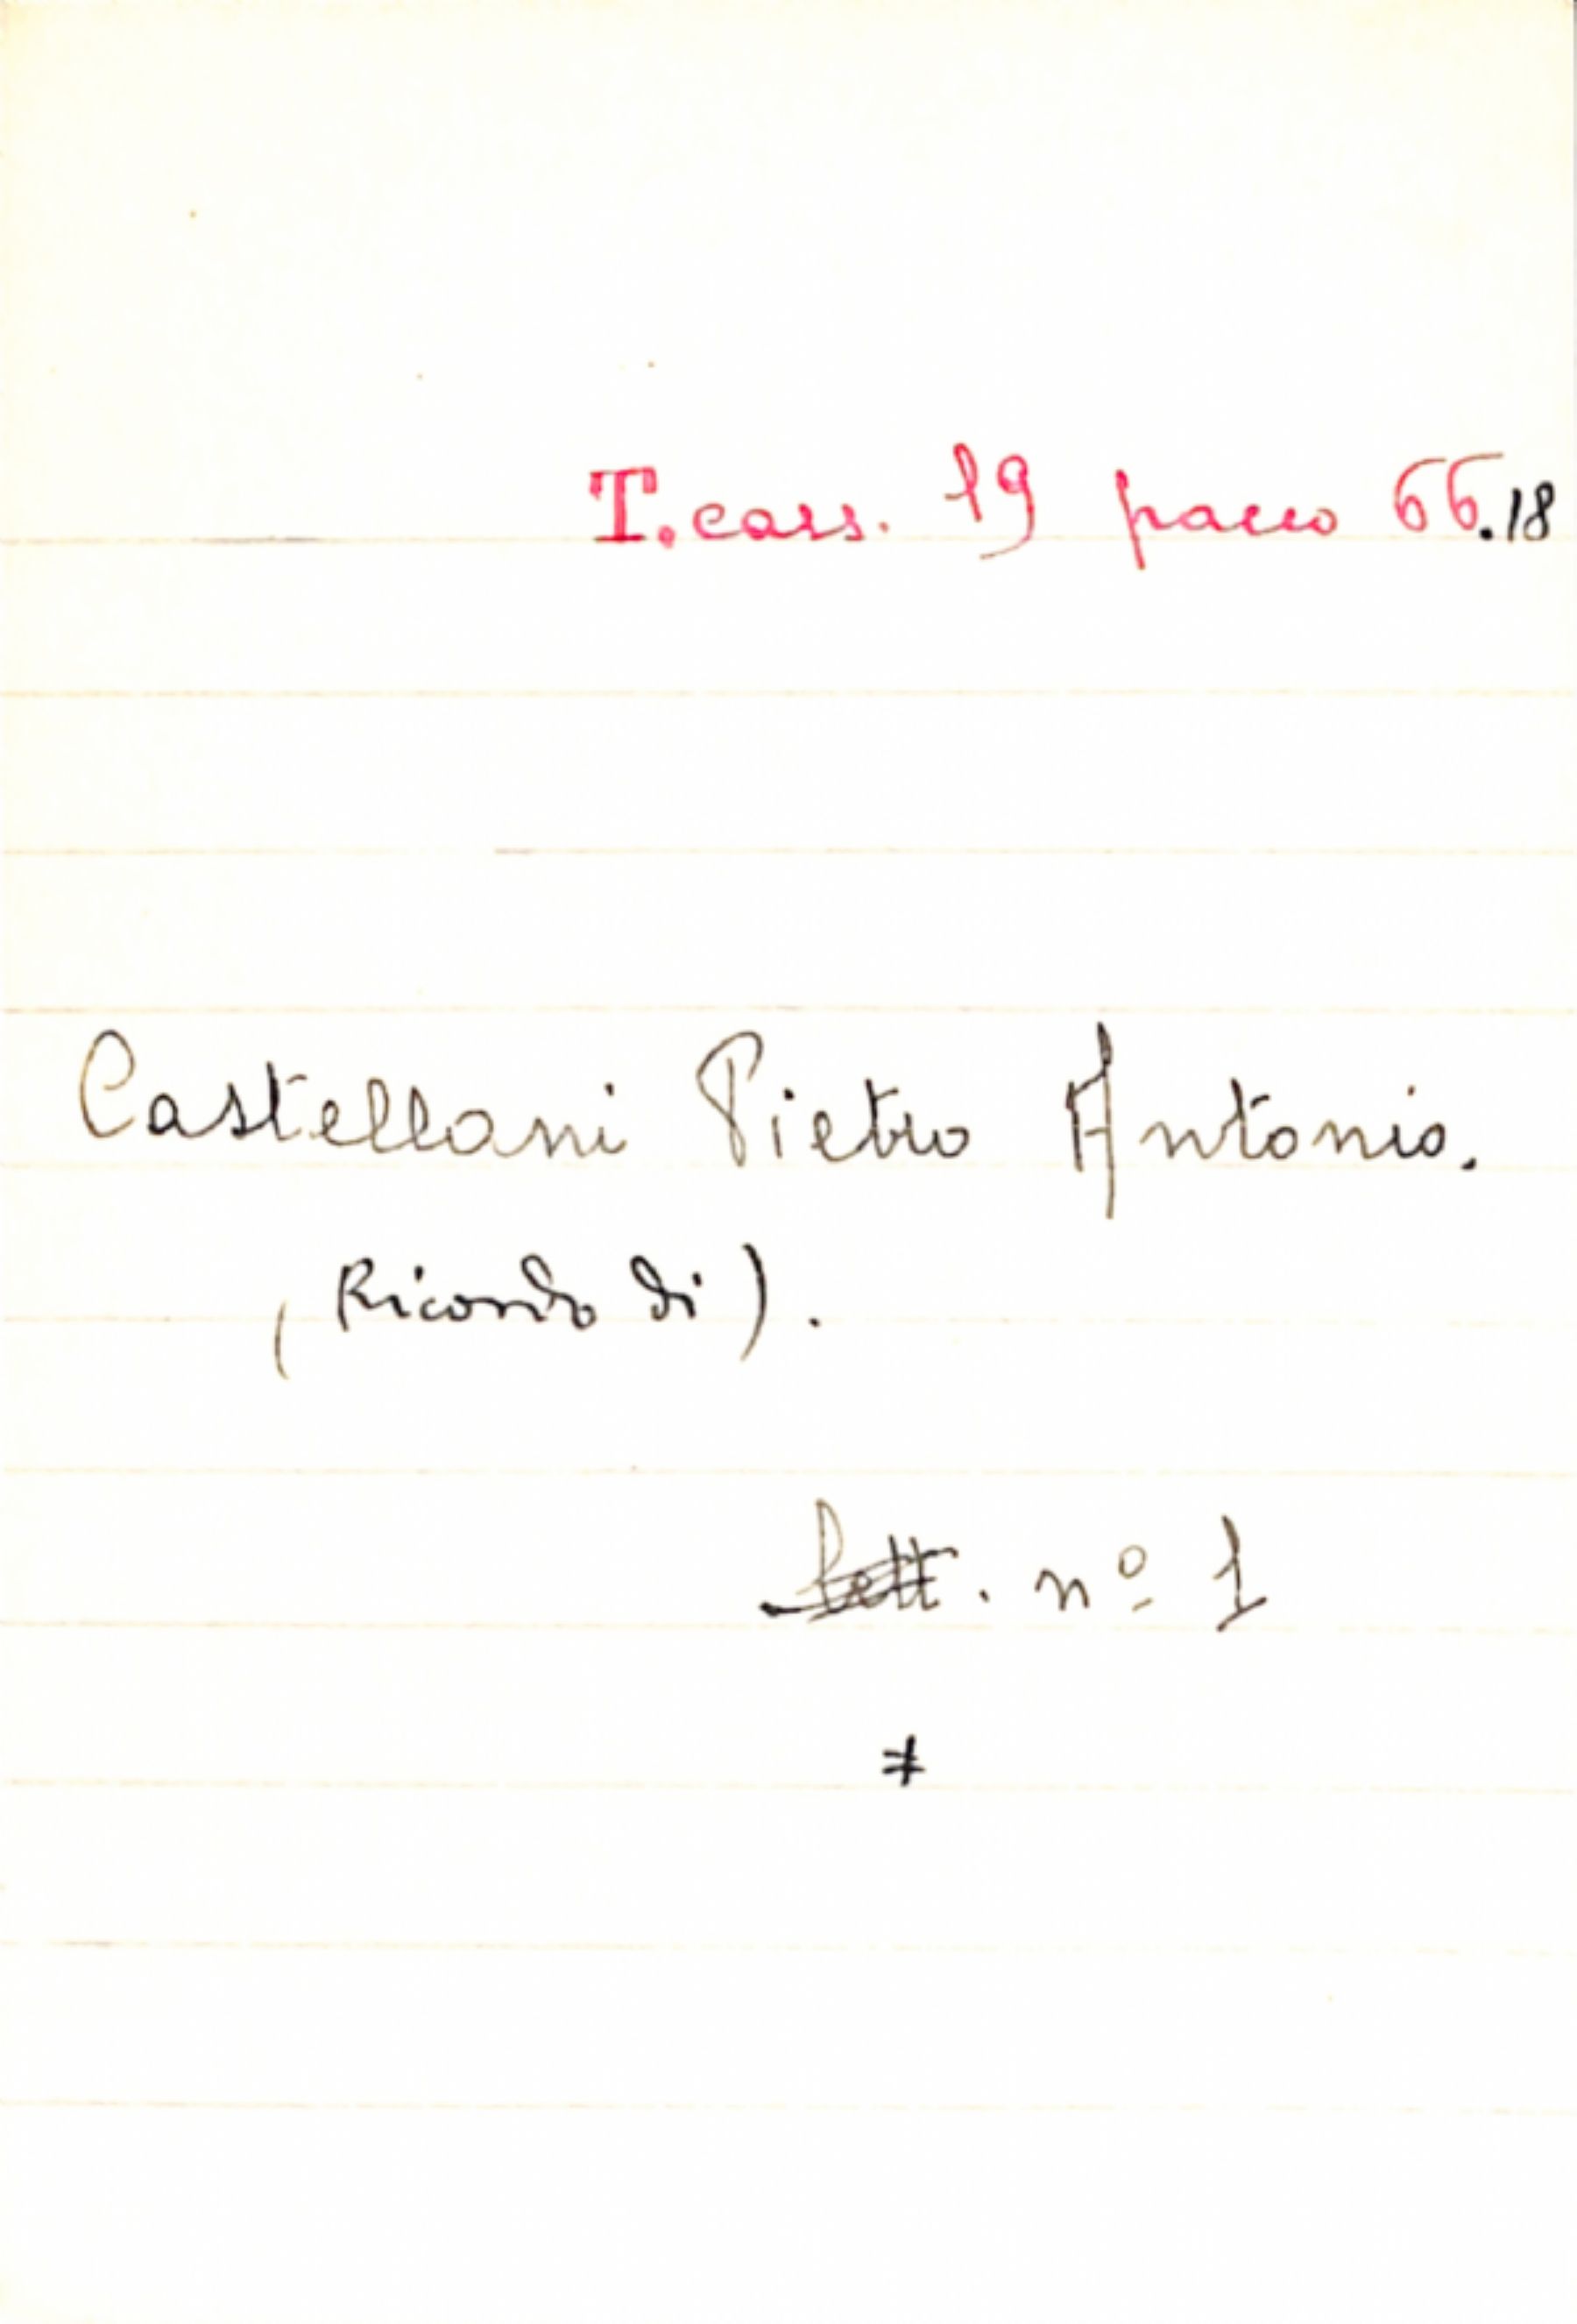 T. cass. 19 pacco 66.18
Castellani Pietro Antonio.
(Ricordo di).
Lett. nº 1
≠